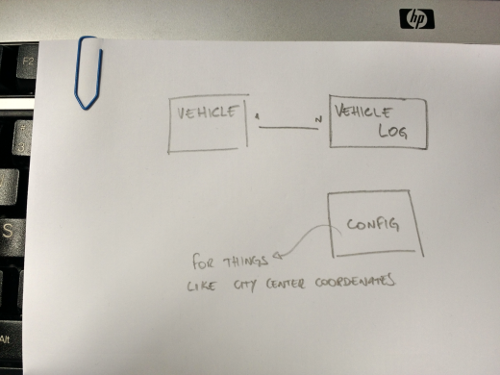 hp
F2
VEHICLE
1
N
VEHICLE
LOG
S
CONFIG
FOR THINGS
LIKE CITY CENTER COORDENATES
Alt